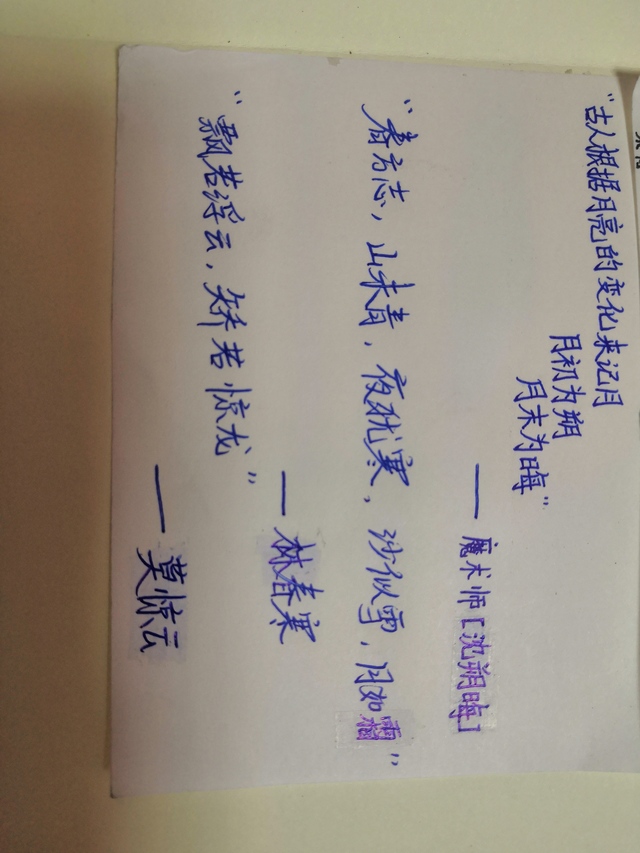 “古人根据月亮的变化来记月
月初为朔
月末为晦”
—— 魔术师[沈朔晦]
“春方志，山未青，夜犹寒，沙似雪，月如霜”
—— 林春寒
“飘若浮云，矫若惊龙”
—— 莫惊云